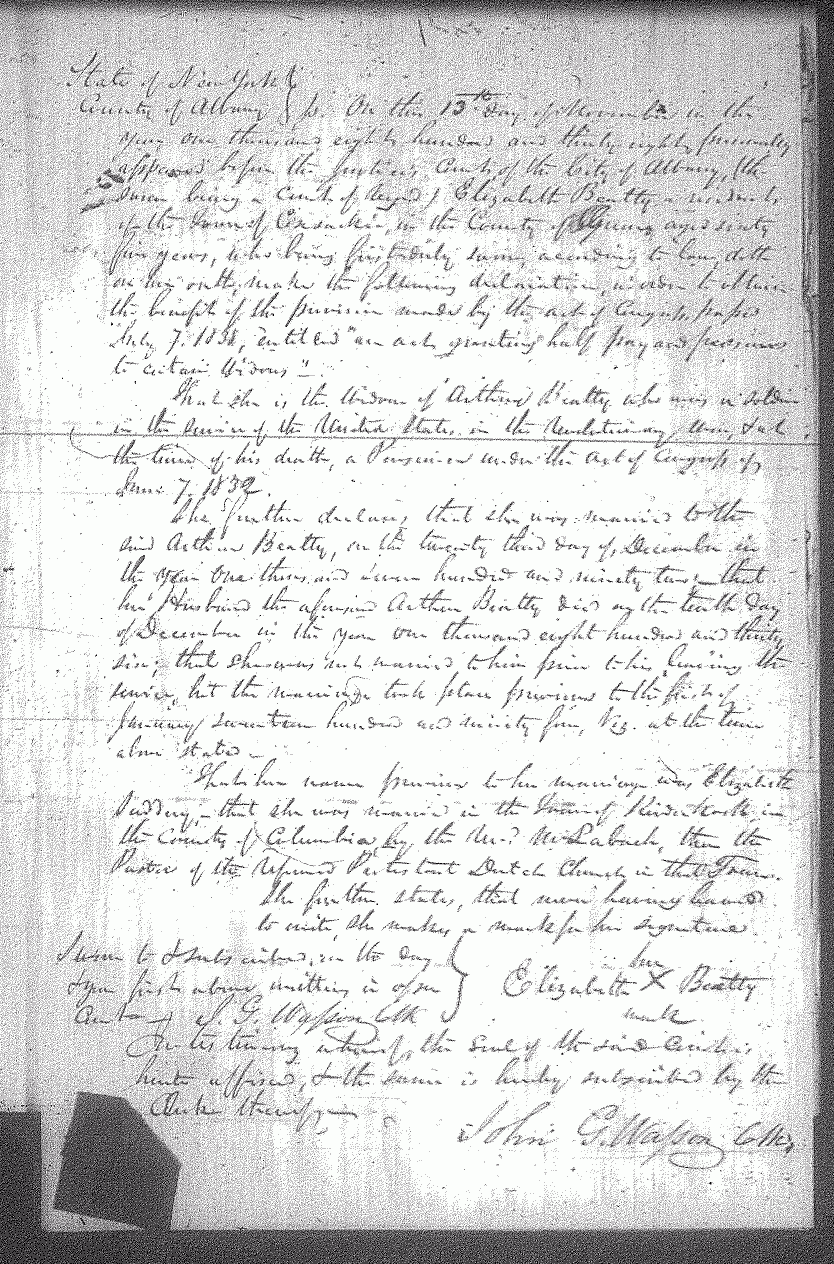 State of New York }
County of Albany } ss. On this 13th day of November in the
year one thousand eight hundred and thirty eight, personally
appeared before the Justices Court of the City of Albany, (the
same being a court of record) Elizabeth Beatty a resident
of the Town of Coxsackie, in the County of Greene aged sixty
five years, who being first duly sworn, according to law, doth
on her oath, make the following declaration, in order to obtain
the benefit of the provision made by the act of Congress, passed
July 7. 1838, entitled "an act granting half pay and pensions
to certain widows" –
That she is the Widow of Arthur Beatty who was a soldier
in the service of the United States in the Revolutionary War, & at
the time of his death, a Pensioner under the Act of Congress of
June 7. 1832.
She further declares, that she was married to the
said Arthur Beatty, on the twenty third day of December in
the year one thousand seven hundred and ninety two – that
her Husband the aforesaid Arthur Beatty died on the tenth day
of December in the year one thousand eight hundred and thirty
six; that she was not married to him prior to his leaving the
service, but the marriage took place previous to the first of
January seventeen hundred and ninety four, Viz. at the time
above stated –
That her name previous to her marriage was Elizabeth
– that she was married in the Town of Kinderhook in
the County of Columbia, by the Labach, then the
Pastor of the Reformed Protestant Dutch Church in that Town.
She further states, that never having learned
to write, she makes a mark for her signature.
Sworn to & subscribed, on the day
& year first above written in open
Court – J. G. Wasson Clk
her
Elizabeth X Beatty
mark
In testimony whereof, the seal of the said Court is
hereto affixed, & the same is hereby subscribed by the
Clerk thereof –
John G. Wasson Clk.